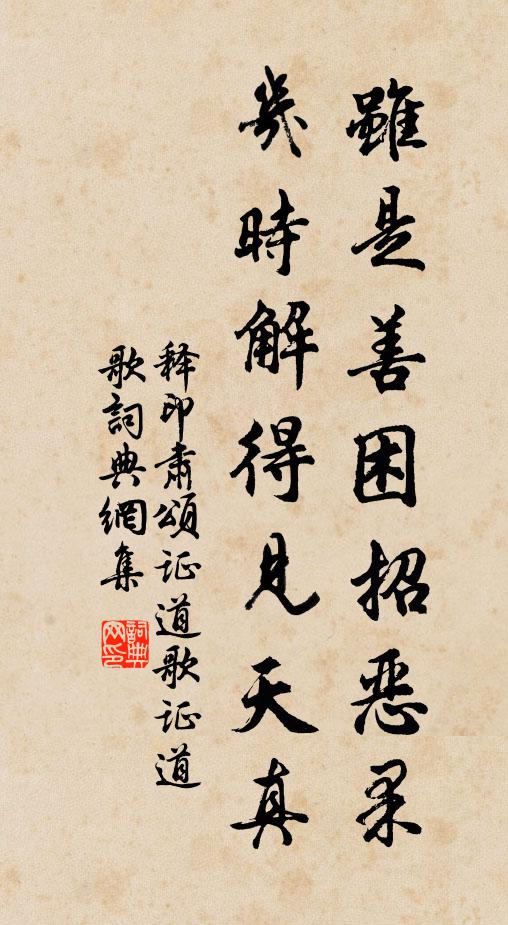 雖是善困招恶果
幾時解得見天真
释印肅頌证道歌证道
歌詞典網集
詞典网印